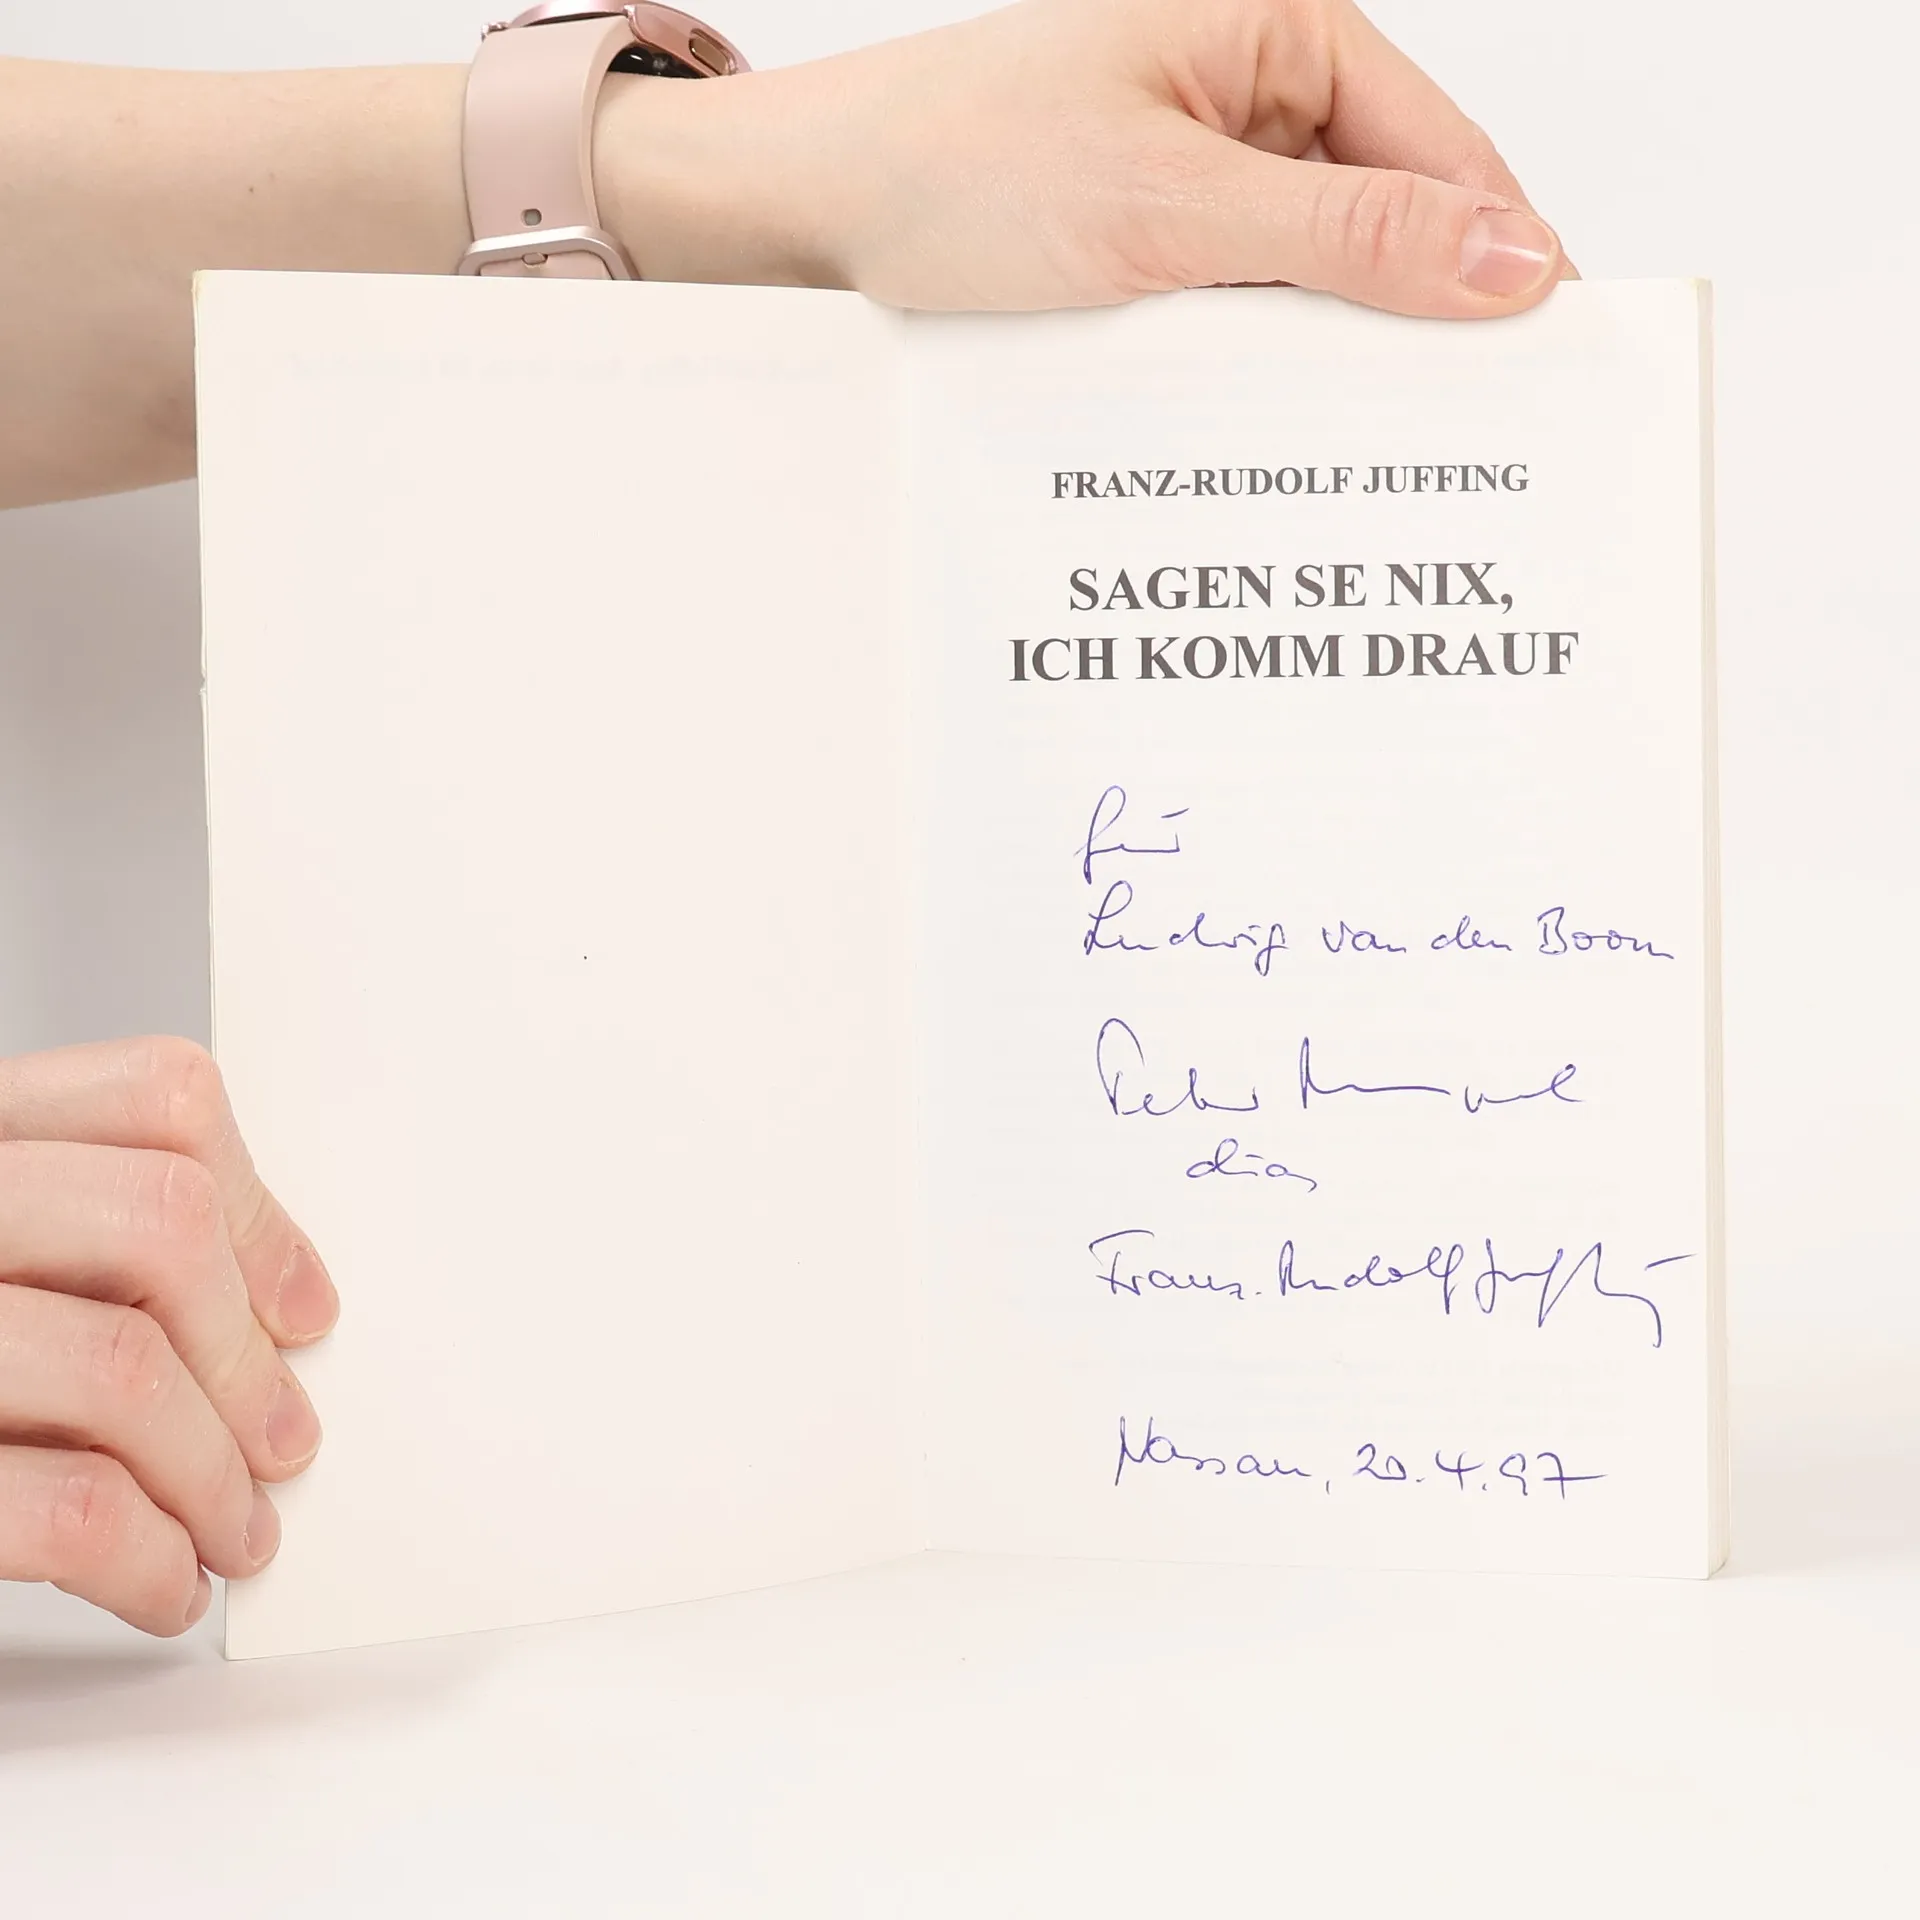 FRANZ-RUDOLF JUFFING
SAGEN SE NIX,
ICH KOMM DRAUF
für
Ludwig van den Boom
Peter
alias
Franz-Rudolf Juffing
Nassau, 20.4.97